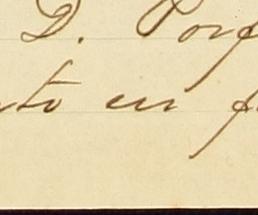 D. Porf
to en f